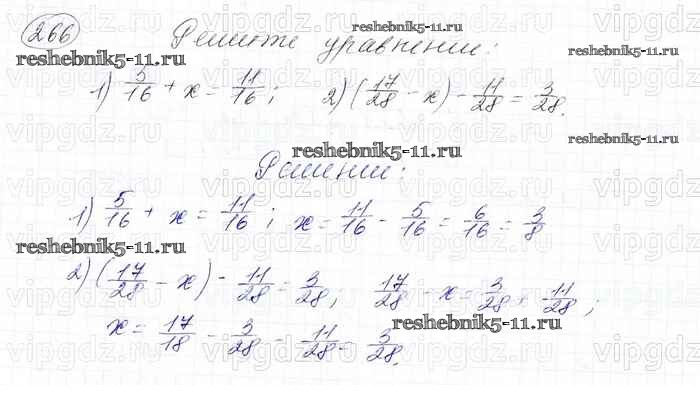 266 Решите уравнение:
reshebnik5-11.ru
reshebnik5-11.ru
reshebnik5-11.ru
1) 5/16 + x = 11/16; 2) (17/28 - x) - 11/28 = 3/28.
reshebnik5-11.ru
reshebnik5-11.ru
Решение:
1) 5/16 + x = 11/16; x = 11/16 - 5/16 = 6/16 = 3/8
reshebnik5-11.ru
2) (17/28 - x) - 11/28 = 3/28; 17/28 - x = 3/28 + 11/28;
reshebnik5-11.ru
x = 17/18 - 3/28 - 11/28 = 3/28.